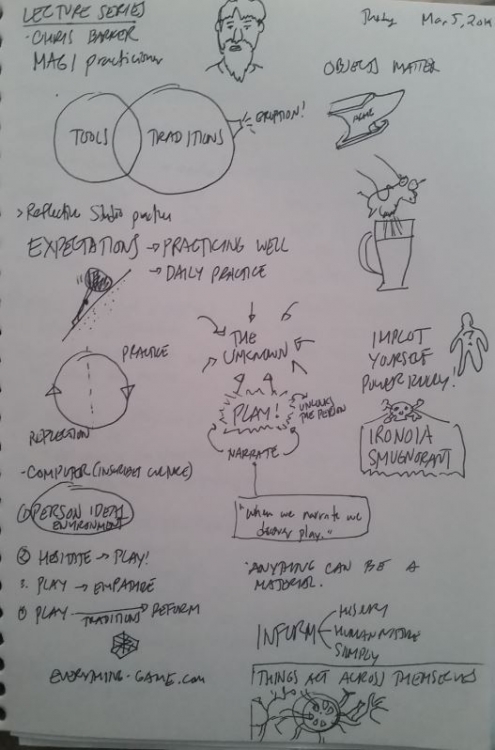 LECTURE SERIES
- CHRIS BARKER
MAGI practicioner
Mar 5, 2014
OBJECTS MATTER
ACME
TOOLS
TRADITIONS
ERUPTION!
> Reflective Studio practice
EXPECTATIONS → PRACTICING WELL
→ DAILY PRACTICE
PRACTICE
REFLECTION
THE
UNKNOWN
PLAY!
UNLOCKS
THE PERSON
NARRATE
"When we narrate we
play."
YOURSELF
IRONOIA
SMUGNORANT
- COMPUTER
① PERSON IDEAS
ENVIRONMENT
② HESITATE → PLAY!
3. PLAY → EMPATHIZE
PLAY → REFORM
TRADITIONS
EVERYTHING-GAME.COM
ANYTHING CAN BE A
MATERIAL.
INFORM
HISTORY
HUMAN NATURE
SIMPLY
THINGS ACT ACROSS THEMSELVES